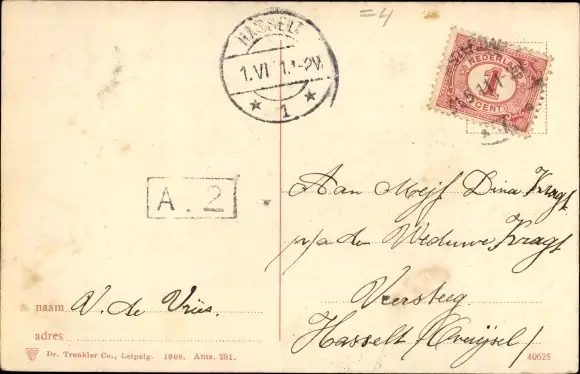 =4
HASSELT
1.VI 1.1-2V.
1
NEDERLAND
1
CENT
A. 2
Aan Mejf Dina Kragt
p/a den Weduwe Kragt
Veersteeg
Hasselt (Overijsel)
naam V. de Vries.
adres
Dr. Trenkler Co., Leipzig. 1908. Ams. 281.
40625